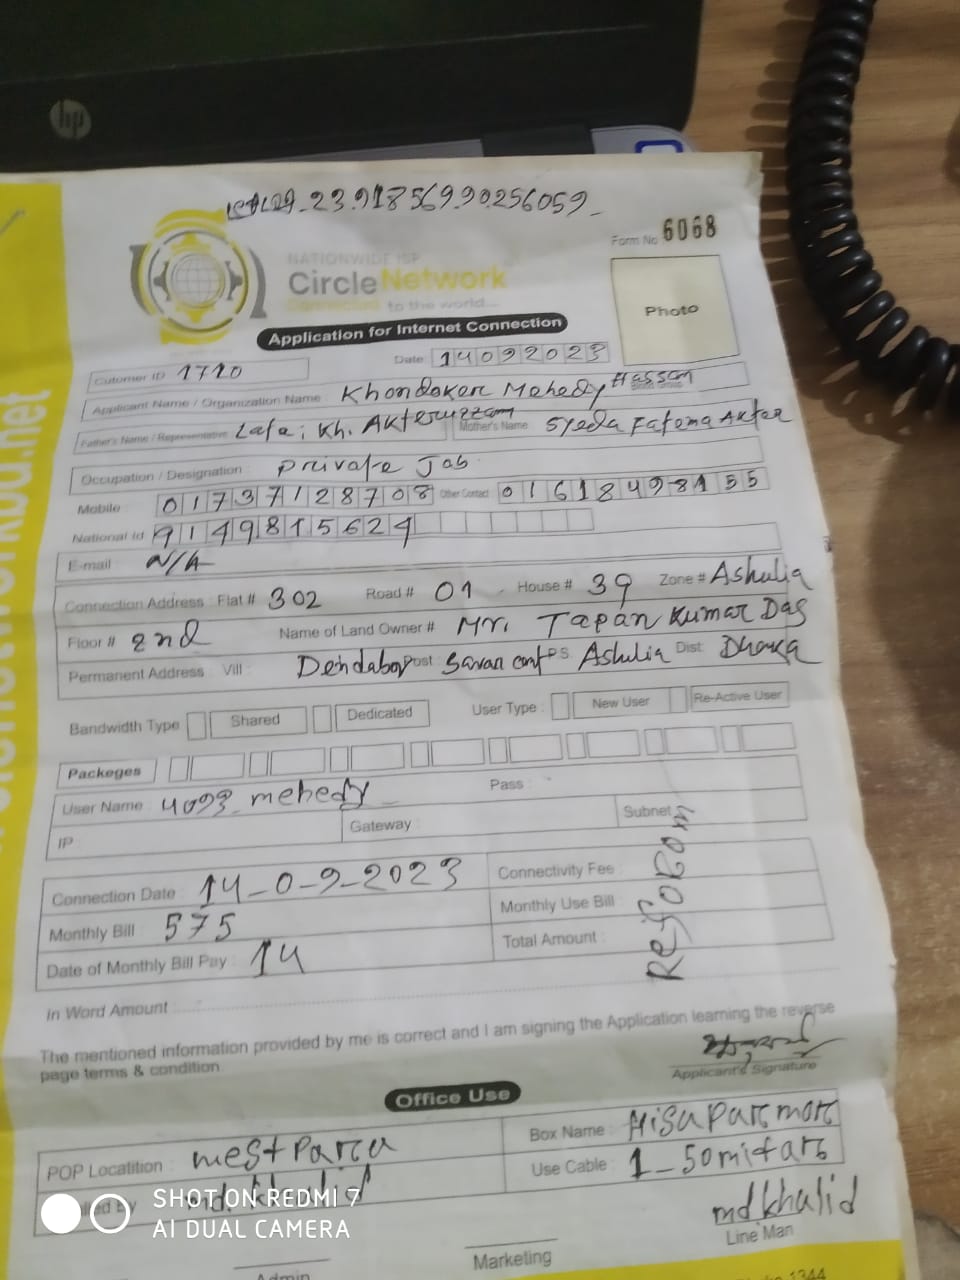 hp
23.918569.90.256059
Form No 6068
NATIONWIDE ISP
CircleNetwork
Connected to the world...
Photo
Application for Internet Connection
Date 14092023
Cutomer ID 1710
Applicant Name / Organization Name: Khondaker Mehedy Hassan
Father's Name / Representative: Late; Kh. Akteruzzam Mother's Name: Syeda Fatema Akter
Occupation / Designation: Private Job
Mobile: 01737128708 Other Contact
National Id 9149815624
E-mail: N/A
Connection Address: Flat # 302 Road # 01 House # 39 Zone # Ashulia
Floor # 2nd Name of Land Owner # Mr. Tapan Kumar Das
Permanent Address: Vill: Dendabor Post: Savar cant P.S. Ashulia Dist: Dhaka
Bandwidth Type Shared Dedicated User Type: New User Re-Active User
Packeges
User Name: 4093_mehedy Pass:
IP: Gateway: Subnet
Connection Date: 14-0-9-2023 Connectivity Fee:
Monthly Bill: 575 Monthly Use Bill:
Date of Monthly Bill Pay: 14 Total Amount:
ReFoRom
In Word Amount
The mentioned information provided by me is correct and I am signing the Application learning the reverse
page terms & condition.
Applicant's Signature
Office Use
POP Locatition: West Parca Box Name: Hisu Parc morc
Use Cable: 1_50mitars
md khalid
md khalid
Line Man
Admin Marketing
SHOT ON REDMI 7
AI DUAL CAMERA